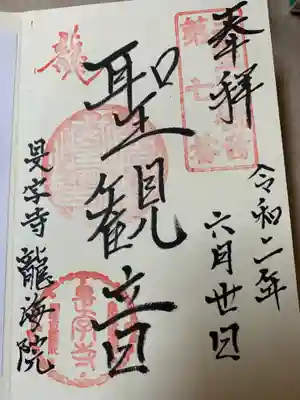 奉拝
第七番
令和二年
六月廿日
聖観音
龍
是字寺 龍海院
是字寺